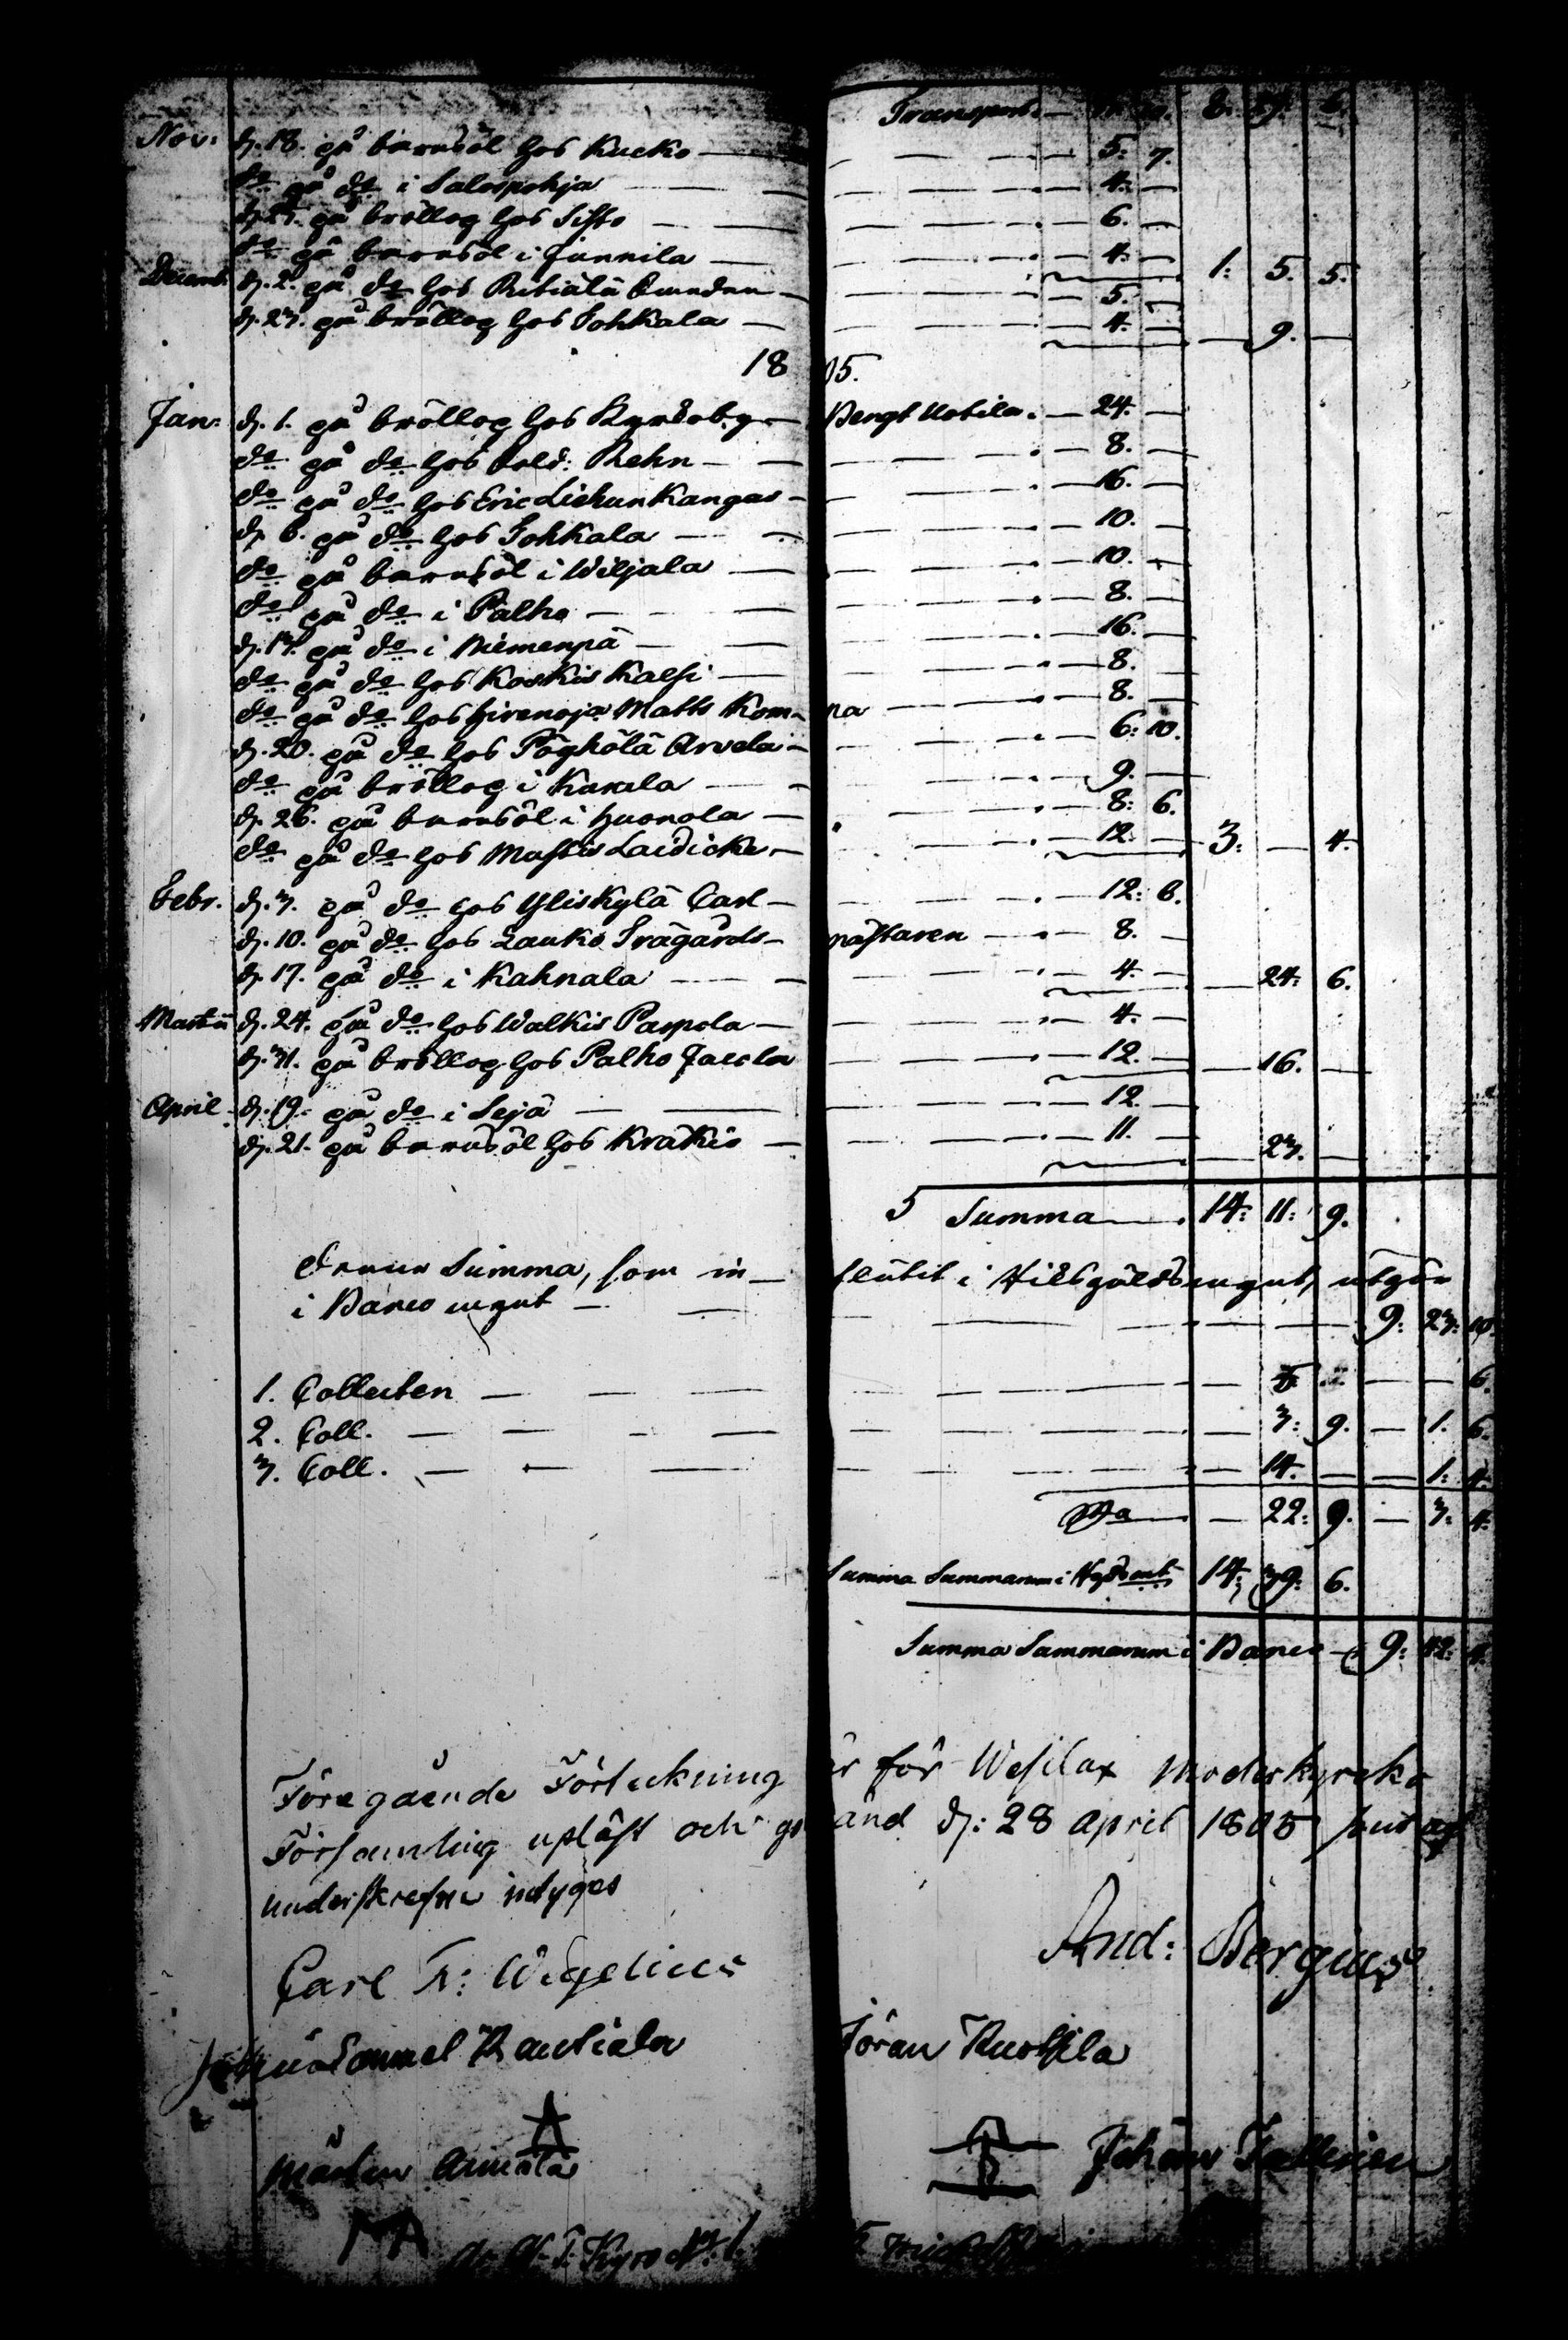 Transport. —
Nov: d. 18. på barnsöl hos Kucko — 5: 7.
do på do i Salospohja — 4. —
d. 25. på bröllop hos Sisto — 6. —
do på barnsöl i Junnila — 4. — 1: 5. 5.
Decemb. d. 2. på do hos — 5. —
d. 23. på bröllop hos Tohkala — 4. — — 9. —
1805.
Jan: d. 1. på bröllop hos Bengt Uotila. — 24. —
do på do hos Sold: Rehn — 8. —
do på do hos Eric Liehunkangas — 16. —
d. 6. på do hos Tohkala — 10. —
do på barnsöl i Wiljala — 10. —
do på do i Palho — 8. —
d. 13. på do i Niemenpä — 16. —
do på do hos Koskis Kalsi — 8. —
do på do hos Hirvenoja Matts Komna — 8. —
d. 20. på do hos Pöyhölä Arvela — 6: 10.
do på bröllop i Kurala — 9. —
d. 26. på barnsöl i Huonola — 8: 6.
do på do hos Mattis Laidicke — 12. — 3: — 4.
Febr. d. 3. på do hos Yliskylä Carl — 12: 6.
d. 10. på do hos Lauko Trägårdsmästaren — 8. —
d. 17. på do i Kahnala — 4. — — 24: 6.
Martii d. 24. på do hos Walkis Paspola — 4. —
d. 31. på bröllop hos Palho Jaccla — 12. — — 16. —
April d. 19. på do i Sejä — 12. —
d. 21. på barnsöl hos Krakis — 11. — — 23. —
Summa — 14: 11: 9.
Denna Summa, som influtit i Riksgäldsmynt, utgör
i Banco mynt — 9: 23: 10.
1. Collecten — 5. — — — 6.
2. Coll. — 3: 9. — 1. 6.
3. Coll. — 14. — — 1: 4.
— 22: 9. — 3: 4.
Summa Summarum i Rgds mt 14: 39: 6.
Summa Summarum i Banco — 9:
Föregående Förteckning är för Wesilax Moderkyrko
Församling upläst och den 28 April 1805 
underskrefne intyges
Carl Wegelius And: Bergius
Samuel Rautiala Jöran Kuossila
Mårten Anniala Johan
MA